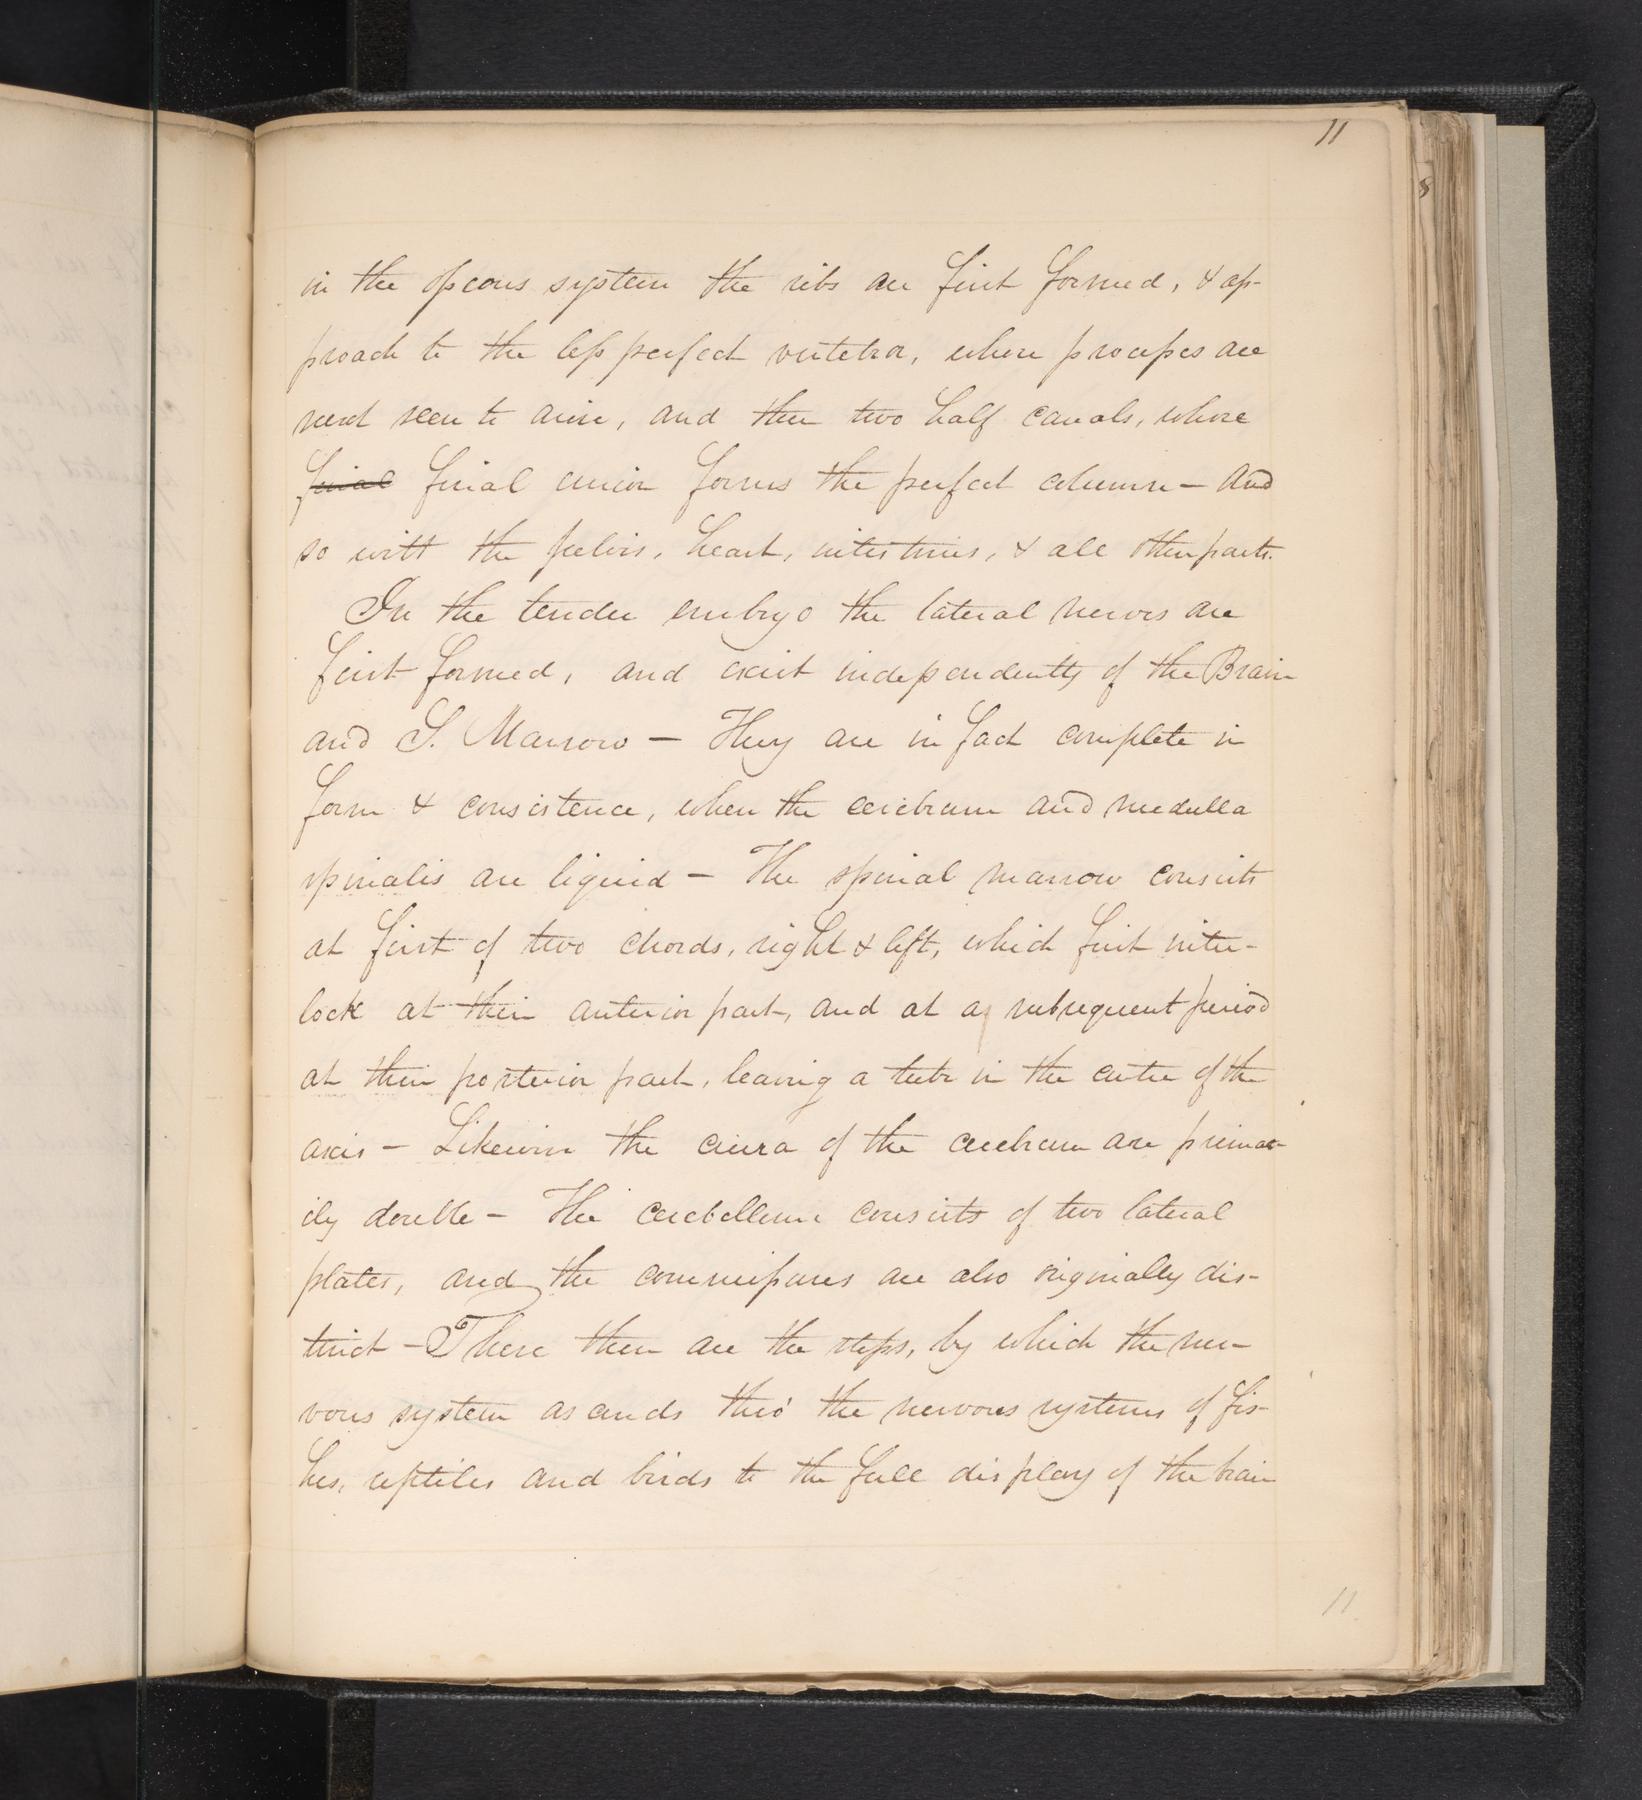 11
8
in the osseous system the ribs are first formed, & ap-
proach to the less perfect vertebra, where processes are
next seen to arise, and then two half canals, whose
final final union forms the perfect column – and
so with the pelvis, heart, intestines, & all other parts.
In the tender embryo the lateral nerves are
first formed, and exist independently of the Brain
and S. Marrow – They are in fact complete in
form & consistence, when the cerebrum and medulla
spinalis are liquid – The spinal marrow consists
at first of two chords, right & left, which first inter-
lock at their anterior part, and at a subsequent period
at their posterior part, leaving a tube in the centre of the
axis – Likewise the crura of the cerebrum are primar-
ily double – The cerebellum consists of two lateral
plates, and the commissures are also originally dis-
tinct – These then are the steps, by which the ner-
vous system ascends thro' the nervous systems of fis-
hes, reptiles and birds to the full display of the brain
11.